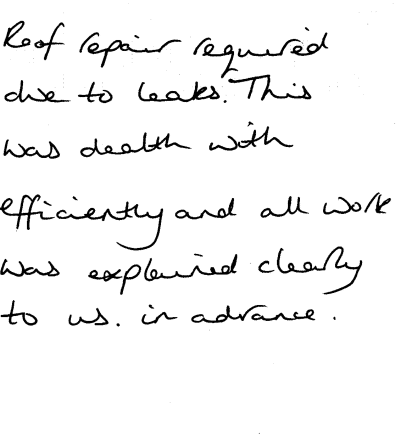 Roof repair required
due to leaks. This
was dealth with
efficiently and all work
was explained clearly
to us. in advance.